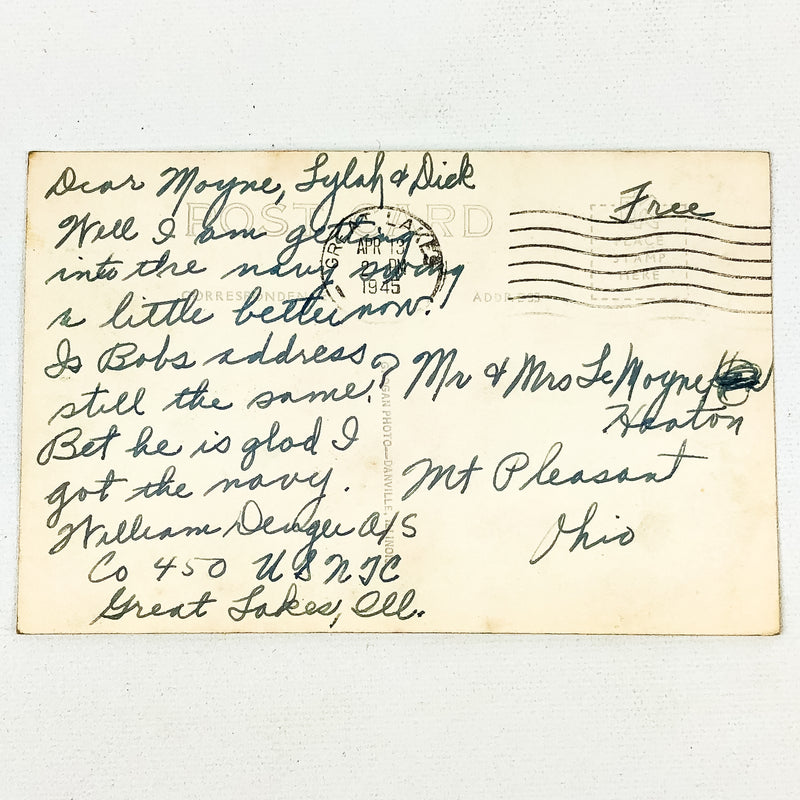 Dear Moyne, Lylah & Dick
POST CARD
Well I am getting
into the navy swing
a little better now.
Is Bobs address
still the same?
Bet he is glad I
got the navy.
William A/S
Co 450 USNTC
Great Lakes, Ill.
GREAT LAKES
APR 13
PM
1945
CORRESPONDENCE
ADDRESS
Free
PLACE
STAMP
HERE
PHOTO—DANVILLE, ILLINOIS
Mr & Mrs LeMoyne
Heaton
Mt Pleasant
Ohio